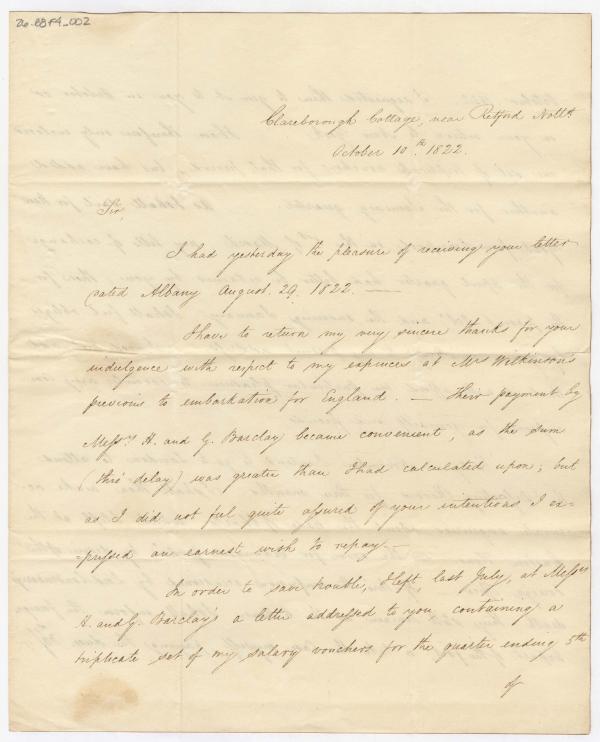 26-88F4_002
Clareborough Cottage, near Retford Notts.
October 10th. 1822.
Sir,
I had yesterday the pleasure of receiving your letter
dated Albany August. 29. 1822. —
I have to return my very sincere thanks for your
indulgence with respect to my expences at Mrs Wilkinson's
previous to embarkation for England. — Their payment by
Messrs H. and G. Barclay became convenient, as the sum
(thro' delay) was greater than I had calculated upon; but
as I did not feel quite assured of your intentions I ex=
=pressed an earnest wish to repay. —
In order to save trouble, I left, last July, at Messrs
H. and G. Barclay's a letter addressed to you containing a
triplicate set of my salary vouchers for the quarter ending 5th
of